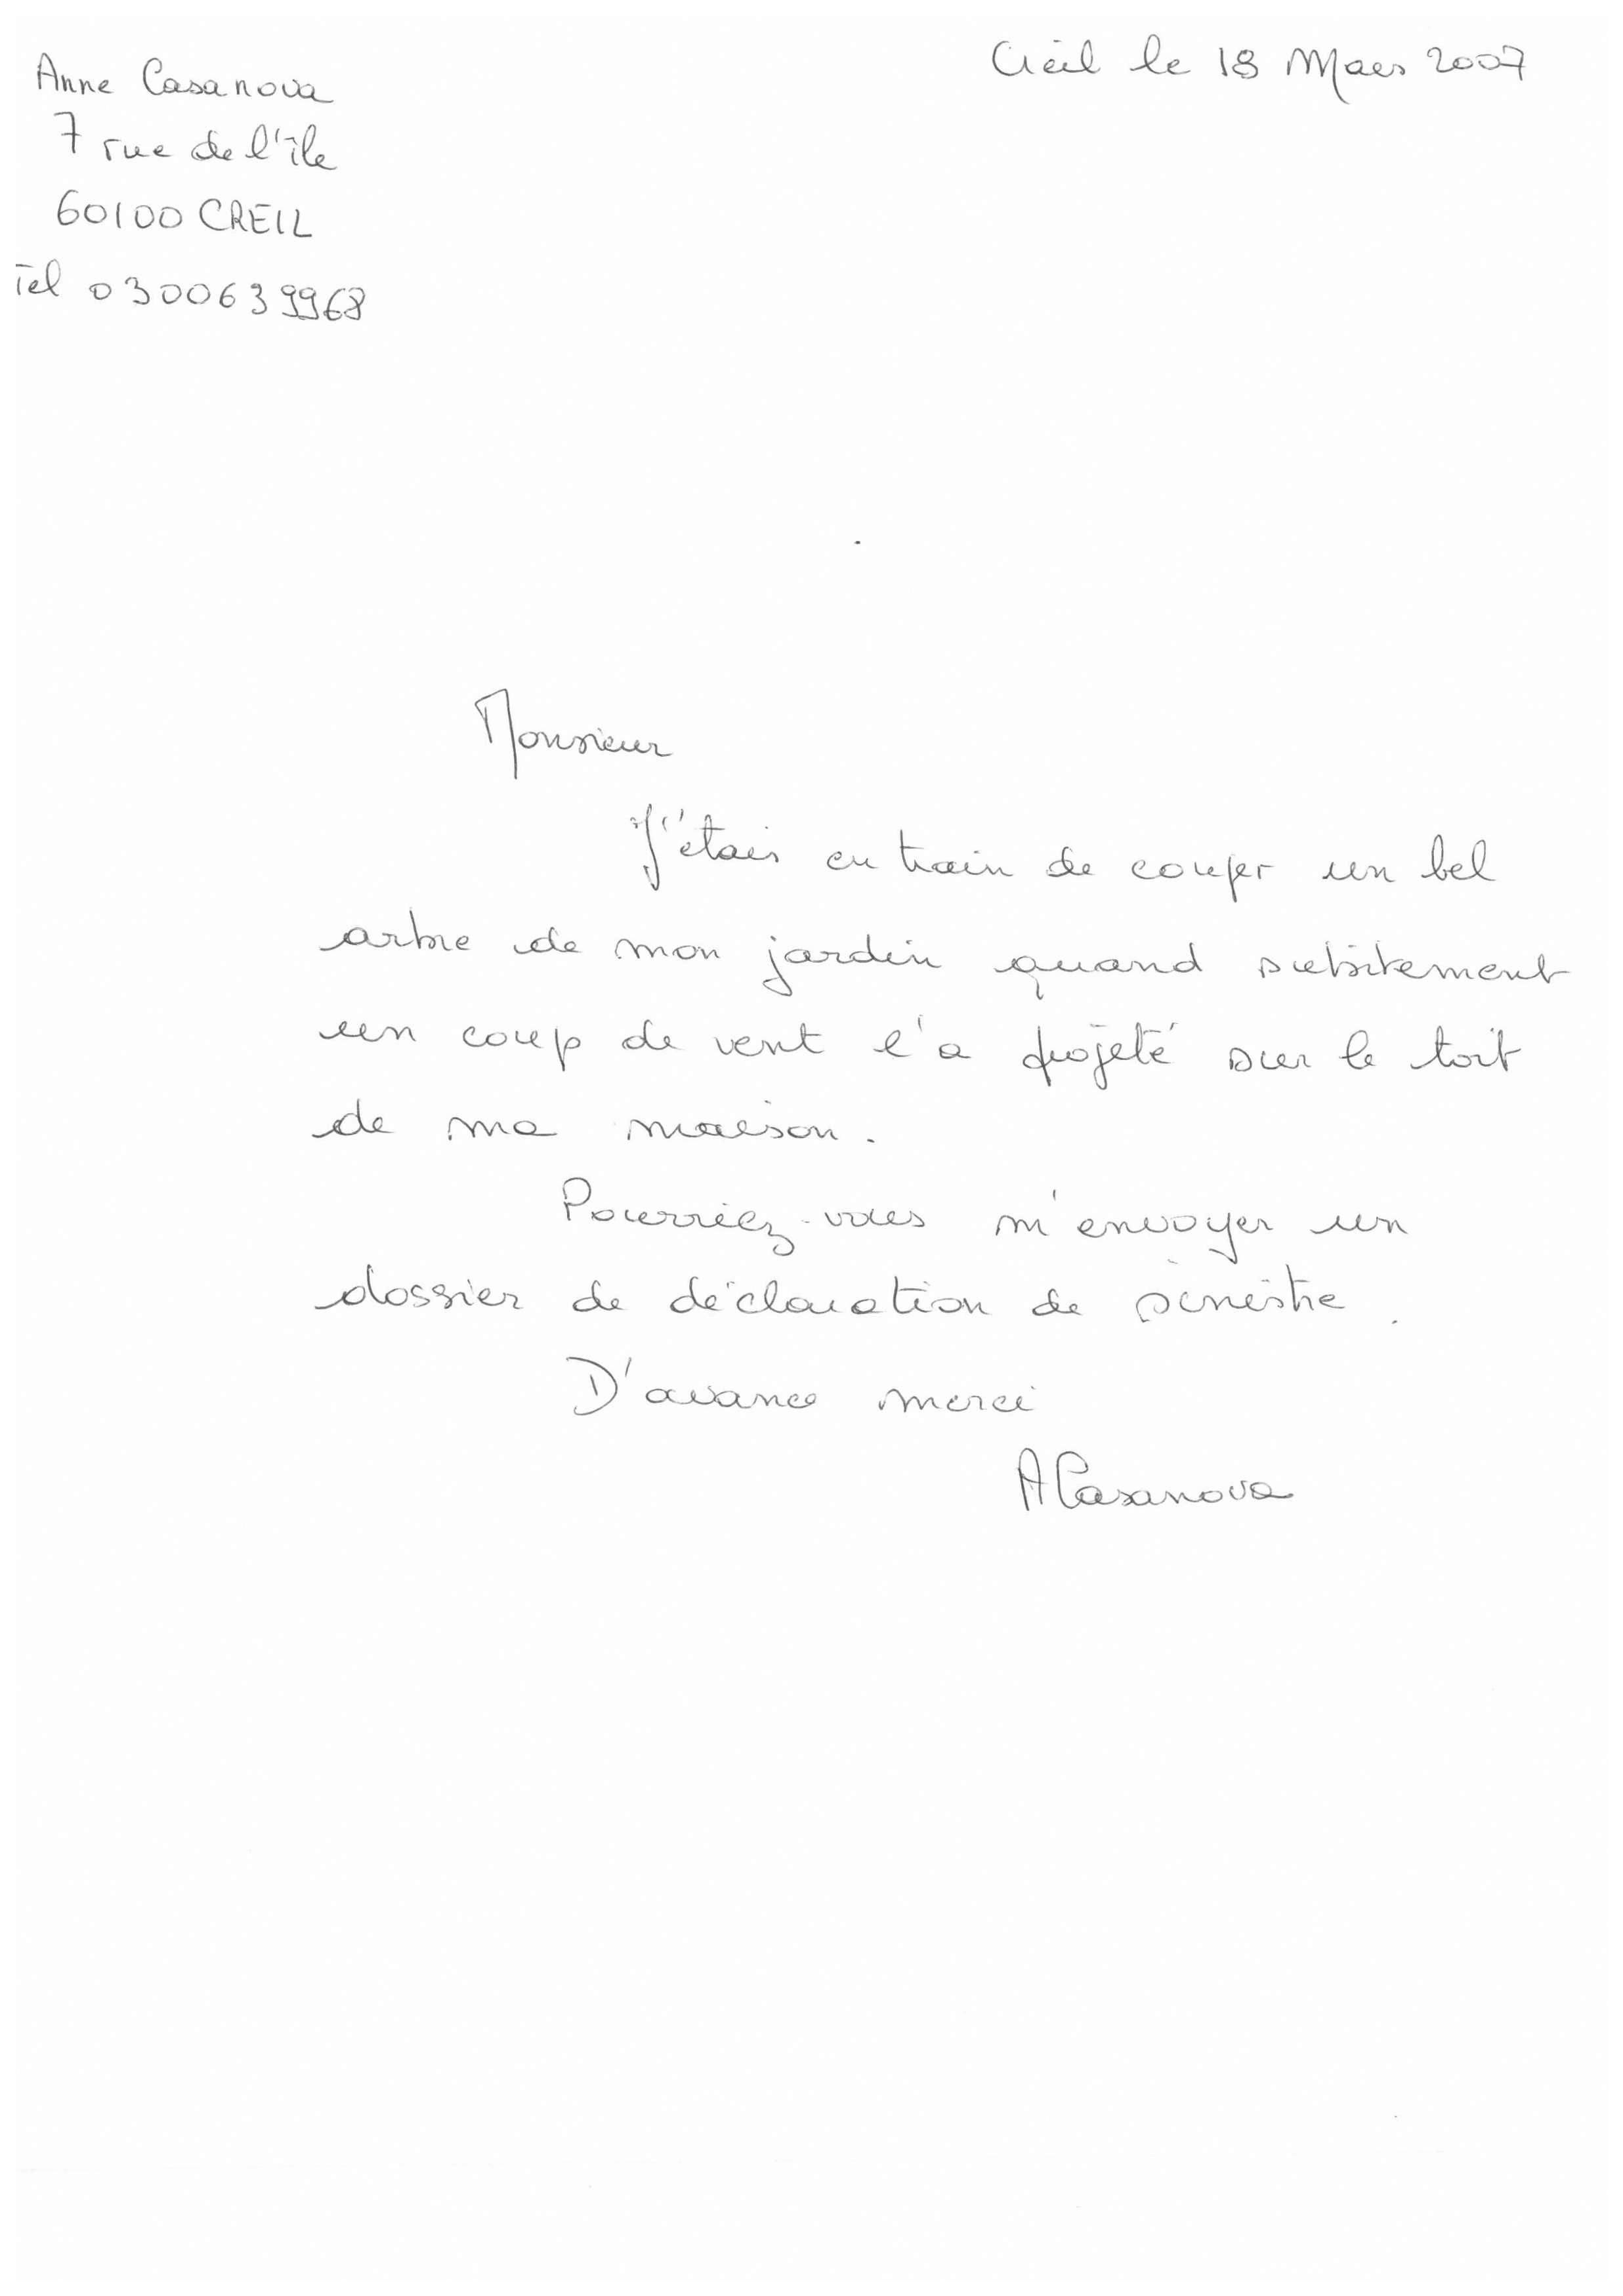 Anne Casanova
7 rue de l'île
60100 CREIL
Tel 0300639968
Creil le 18 Mars 2007
Monsieur
J'étais en train de couper un bel
arbre de mon jardin quand subitement
un coup de vent l'a projeté sur le toit
de ma maison.
Pourriez-vous m'envoyer un
dossier de déclaration de sinistre.
D'avance merci
A Casanova